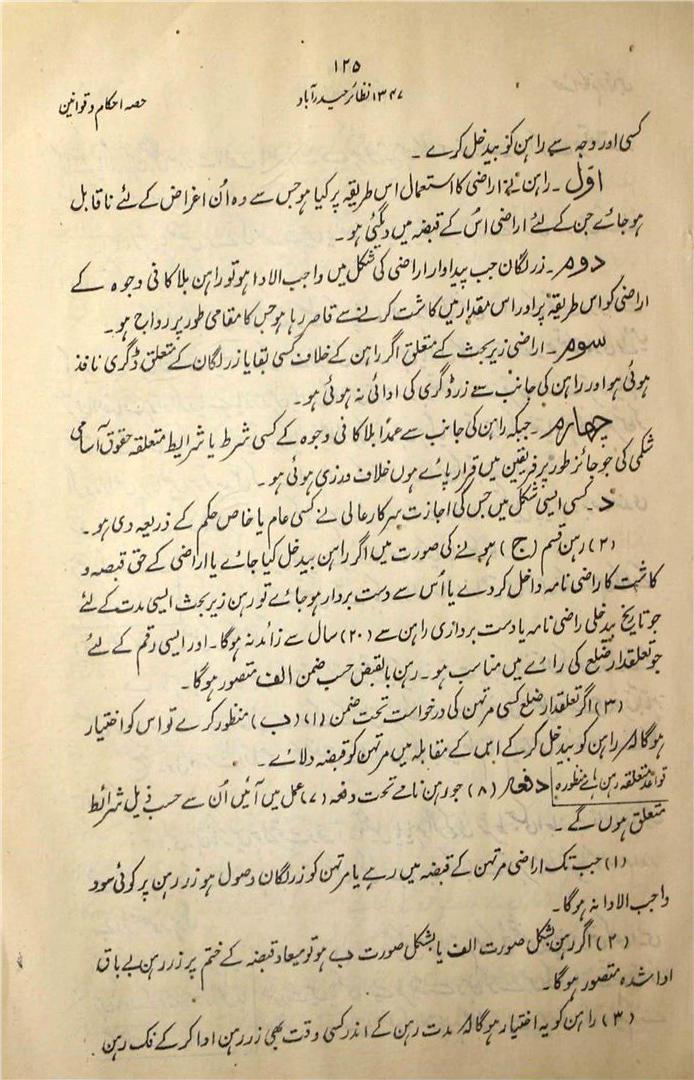 ۱۲۵
۱۳۴۷ نظائر حیدرآباد
حصہ احکام و قوانین
کسی اور وجہ سے راہن کو بیدخل کرے ۔
اوّل ۔ راہن نے اراضی کا استعمال اس طریقہ پر کیا ہو جس سے وہ اُن اغراض کے لئے ناقابل
ہو جائے جن کے لئے اراضی اُس کے قبضہ میں دیگئی ہو ۔
دوم ۔ زر لگان جب پیداوار اراضی کی شکل میں واجب الادا ہو تو راہن بلا کافی وجوہ کے
اراضی کو اس طریقہ پر اور اس مقدار میں کاشت کرنے سے قاصر رہا ہو جس کا مقامی طور پر رواج ہو ۔
سوم ۔ اراضی زیر بحث کے متعلق اگر راہن کے خلاف کسی بقایا زر لگان کے متعلق ڈگری نافذ
ہوئی ہو اور راہن کی جانب سے زر ڈگری کی ادائی نہ ہوئی ہو ۔
چہارم ۔ جبکہ راہن کی جانب سے عمداً بلا کافی وجوہ کے کسی شرط یا شرایط متعلقہ حقوق آسامی
شکمی کی جو جائز طور پر فریقین میں قرار پائے ہوں خلاف ورزی ہوئی ہو ۔
د ۔ کسی ایسی شکل میں جس کی اجازت سرکار عالی نے کسی عام یا خاص حکم کے ذریعہ دی ہو ۔
(۲) رہن قسم (ج) ہونے کی صورت میں اگر راہن بیدخل کیا جائے یا اراضی کے حق قبضہ و
کاشت کا راضی نامہ داخل کردے یا اُس سے دست بردار ہو جائے تو رہن زیر بحث ایسی مدت کے لئے
جو تاریخ بیدخلی راضی نامہ یا دست برداری راہن سے (۲۰) سال سے زائد نہ ہوگا ۔ اور ایسی رقم کے لئے
جو تعلقدار ضلع کی رائے میں مناسب ہو ۔ رہن بالقبض حسب ضمن الف متصور ہوگا ۔
(۳) اگر تعلقدار ضلع کسی مرتہن کی درخواست تحت ضمن (۱) (ب) منظور کرے تو اس کو اختیار
ہوگا کہ راہن کو بیدخل کرکے اس کے مقابلہ میں مرتہن کو قبضہ دلائے ۔
قواعد متعلقہ رہن ہائے منظورہ دفعہ (۸) جو رہن نامے تحت دفعہ (۷) عمل میں آئیں اُن سے حسب ذیل شرائط
متعلق ہوں گے ۔
(۱) جب تک اراضی مرتہن کے قبضہ میں رہے یا مرتہن کو زر لگان وصول ہو زر رہن پر کوئی سود
واجب الادا نہ ہوگا ۔
(۲) اگر رہن بشکل صورت الف یا بشکل صورت ب ہو تو میعاد قبضہ کے ختم پر زر رہن بے باق
ادا شدہ متصور ہوگا ۔
(۳) راہن کو یہ اختیار ہوگا کہ مدت رہن کے اندر کسی وقت بھی زر رہن ادا کرکے فک رہن